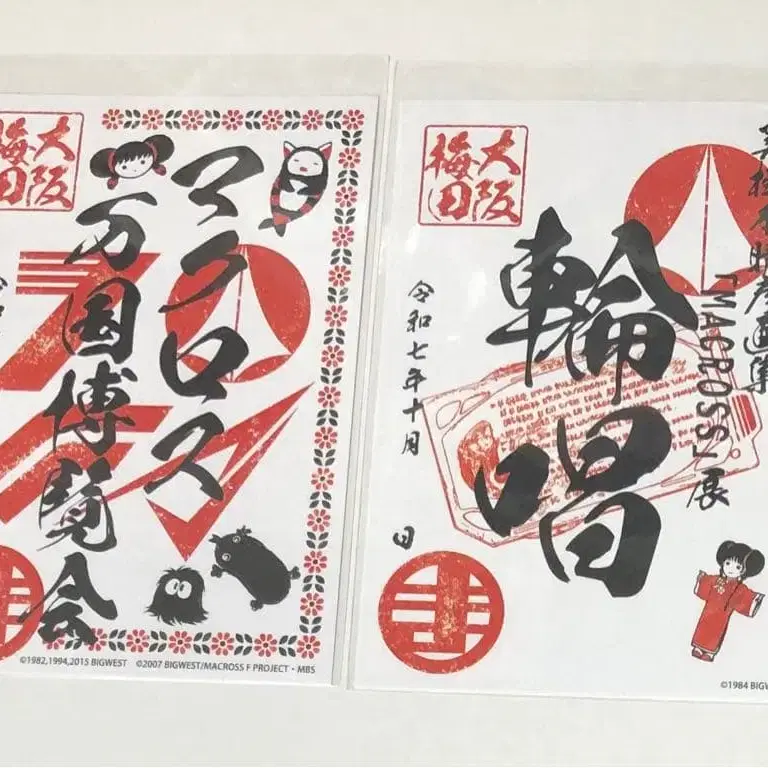 大阪
梅田
マクロス
万国博覧会
©1982,1994,2015 BIGWEST ©2007 BIGWEST/MACROSS F PROJECT・MBS
大阪
梅田
「MACROSS」展
輪唱
令和七年十月 日
©1984 BIGW